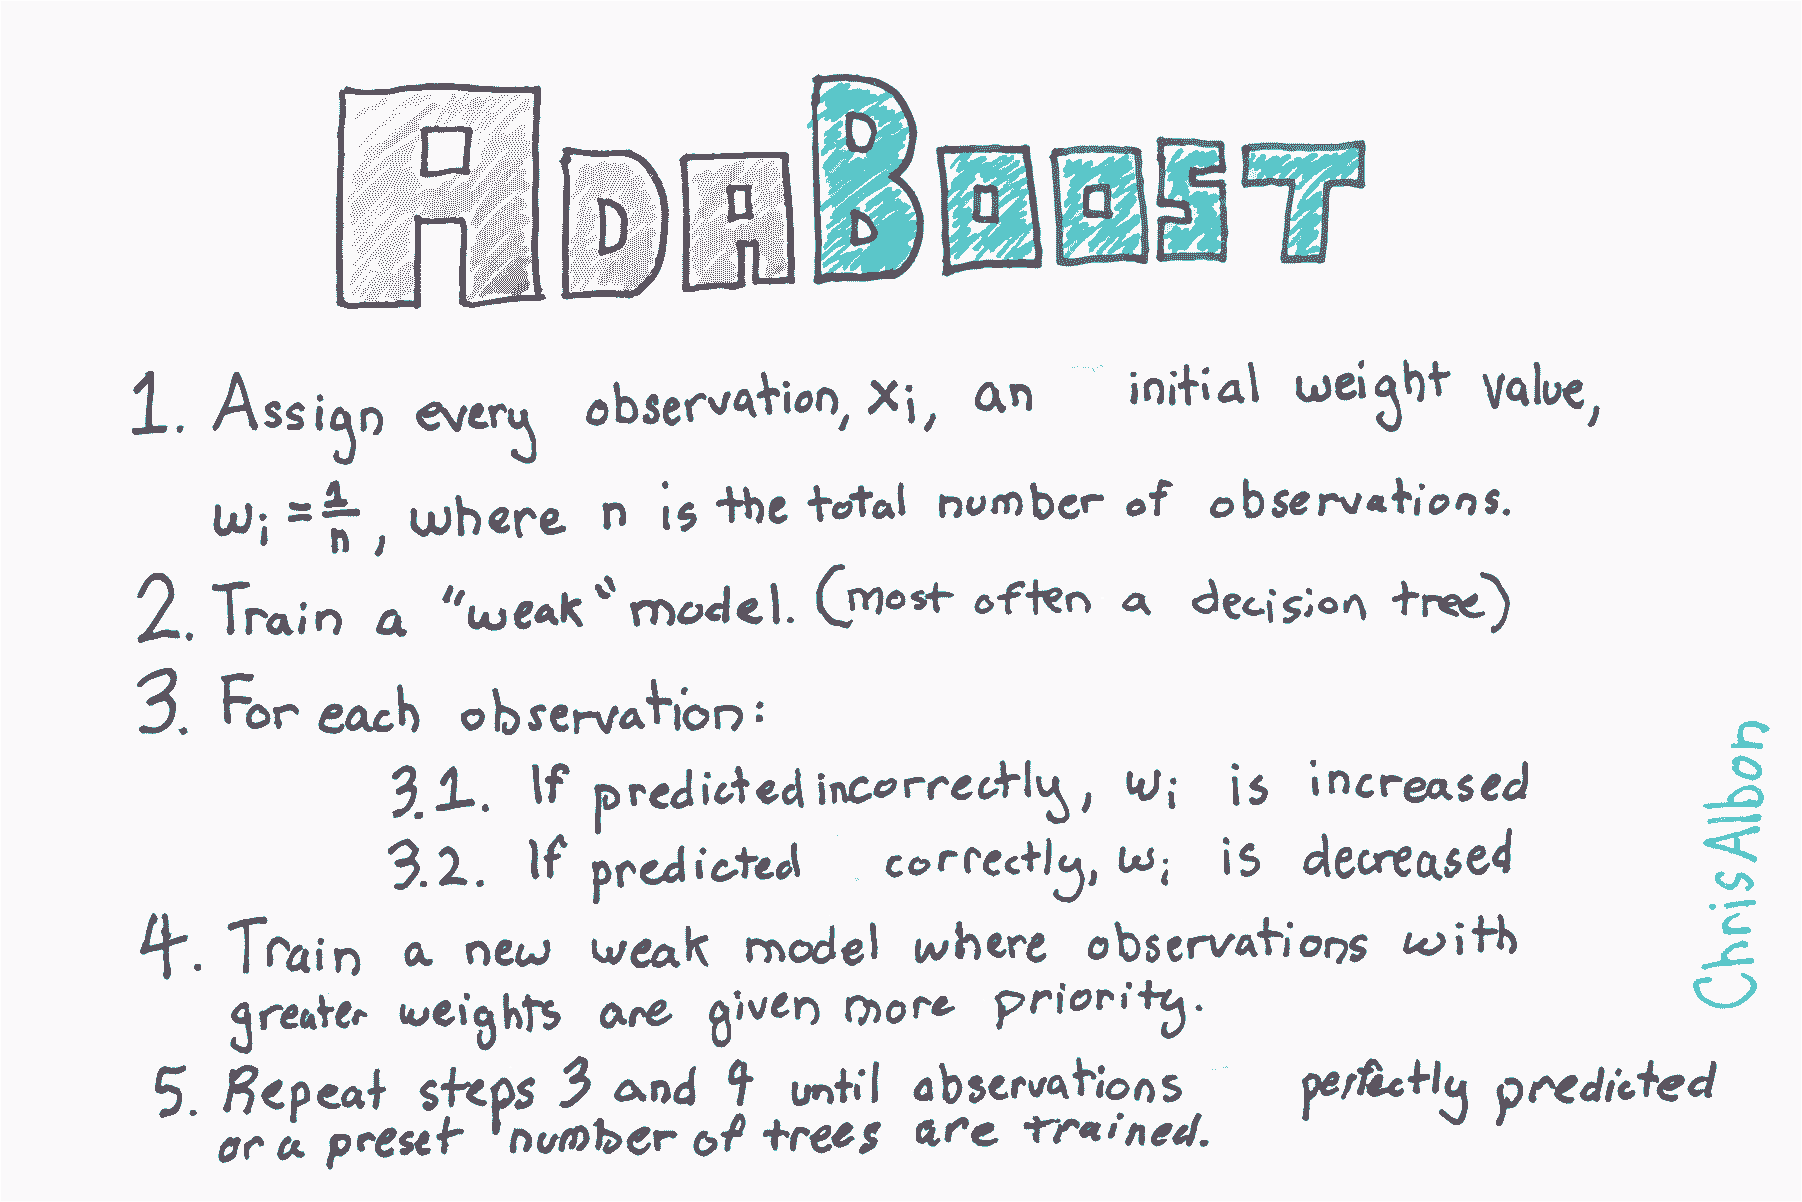 AdaBoost
1. Assign every observation, xi, an initial weight value,
wi = 1/n, where n is the total number of observations.
2. Train a "weak" model. (most often a decision tree)
3. For each observation:
3.1. If predicted incorrectly, wi is increased
3.2. If predicted correctly, wi is decreased
4. Train a new weak model where observations with
greater weights are given more priority.
5. Repeat steps 3 and 4 until observations perfectly predicted
or a preset number of trees are trained.
Chris Albon